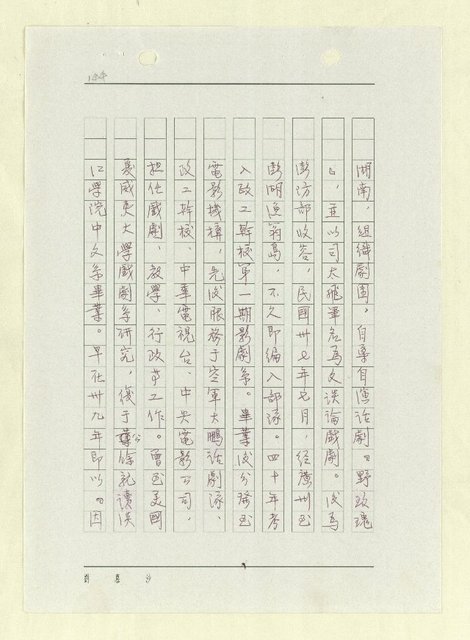 湖南，組織劇團，自導自演話劇『野玫瑰
』，並以司大飛筆名為文談論戲劇。後為
澎防部收容，民國卅七年七月，經廣州至
澎湖漁翁島，不久即編入部隊。四十年考
入政工幹校第一期影劇系。畢業後分發至
電影機構，先後服務于空軍大鵬話劇隊、
政工幹校、中華電視台、中央電影公司，
担任戲劇、教學、行政等工作。曾至美國
夏威夷大學戲劇系研究，復于公餘就讀淡
江學院中文系畢業。早在卅九年即以『因
劉慕沙